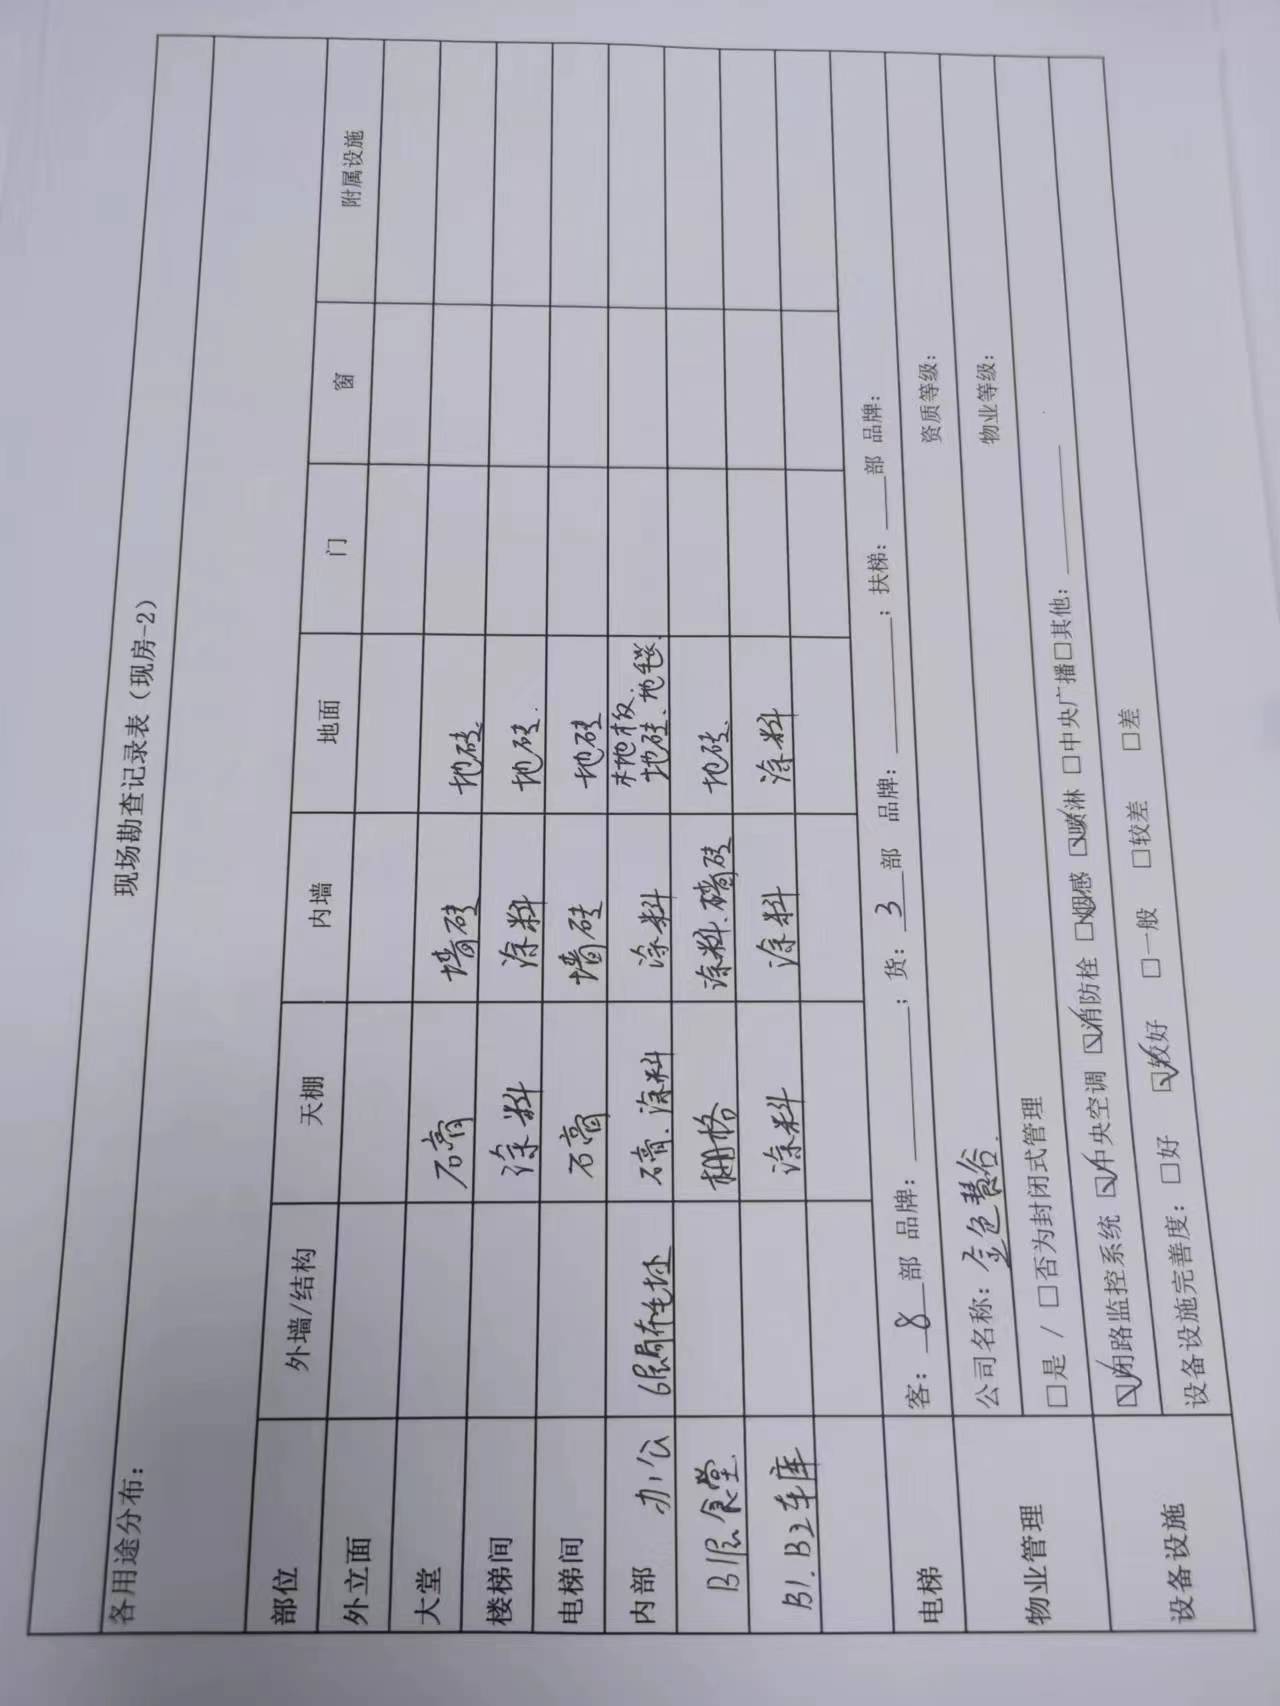 现场勘查记录表（现房-2）
各用途分布：
部位 外墙/结构 天棚 内墙 地面 门 窗 附属设施
外立面
大堂 石膏 墙砖 地砖.
楼梯间 涂料 涂料 地砖.
电梯间 石膏 墙砖 地砖
内部 办公 6层局部毛坯 石膏、涂料 涂料 木地板、地砖、地毯.
B1层食堂 栅格 涂料、墙砖 地砖
B1、B2车库 涂料 涂料 涂料
电梯 客：8部 品牌：；货：3部 品牌：；扶梯：部 品牌：
物业管理 公司名称：金色慧谷. 资质等级：
□是 / □否为封闭式管理 物业等级：
设备设施 ☑闭路监控系统 ☑中央空调 ☑消防栓 ☑烟感 ☑喷淋 □中央广播□其他：
设备设施完善度：□好 ☑较好 □一般 □较差 □差